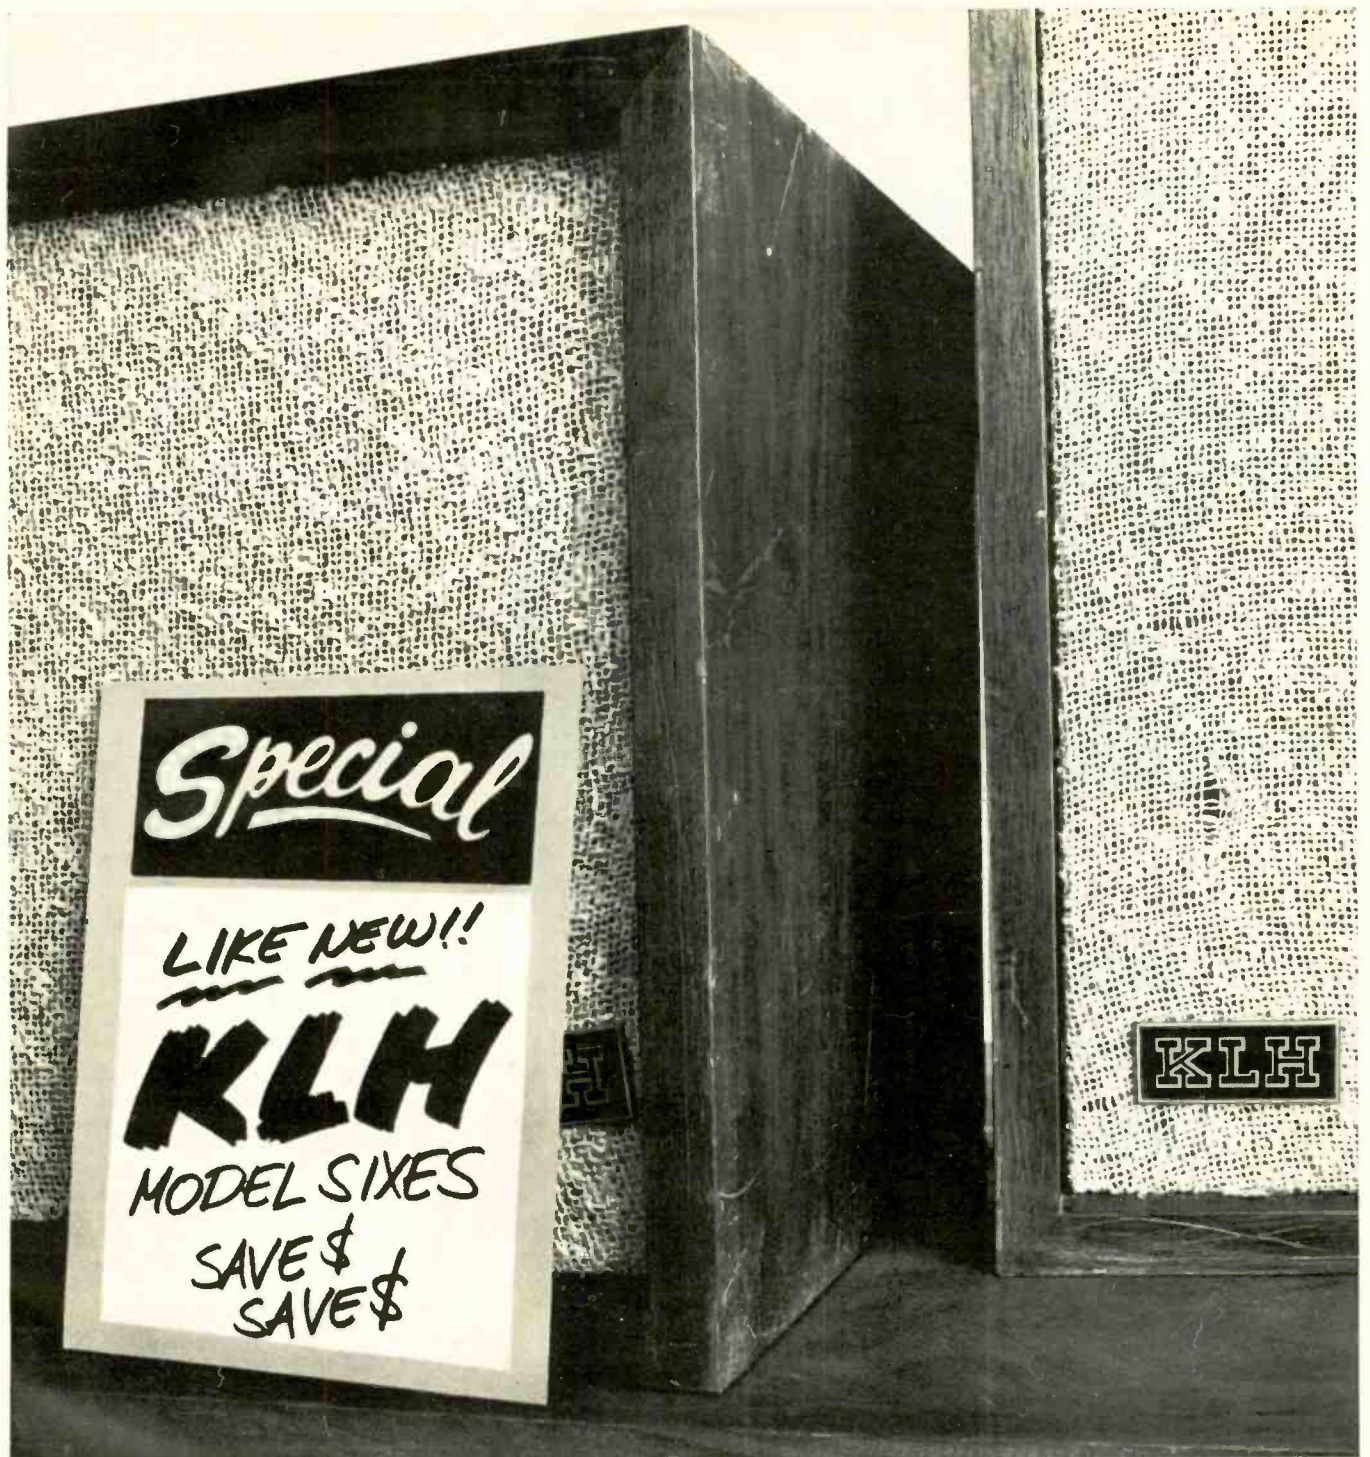 Special
LIKE NEW!!
KLH
MODEL SIXES
SAVE $
SAVE $
KLH